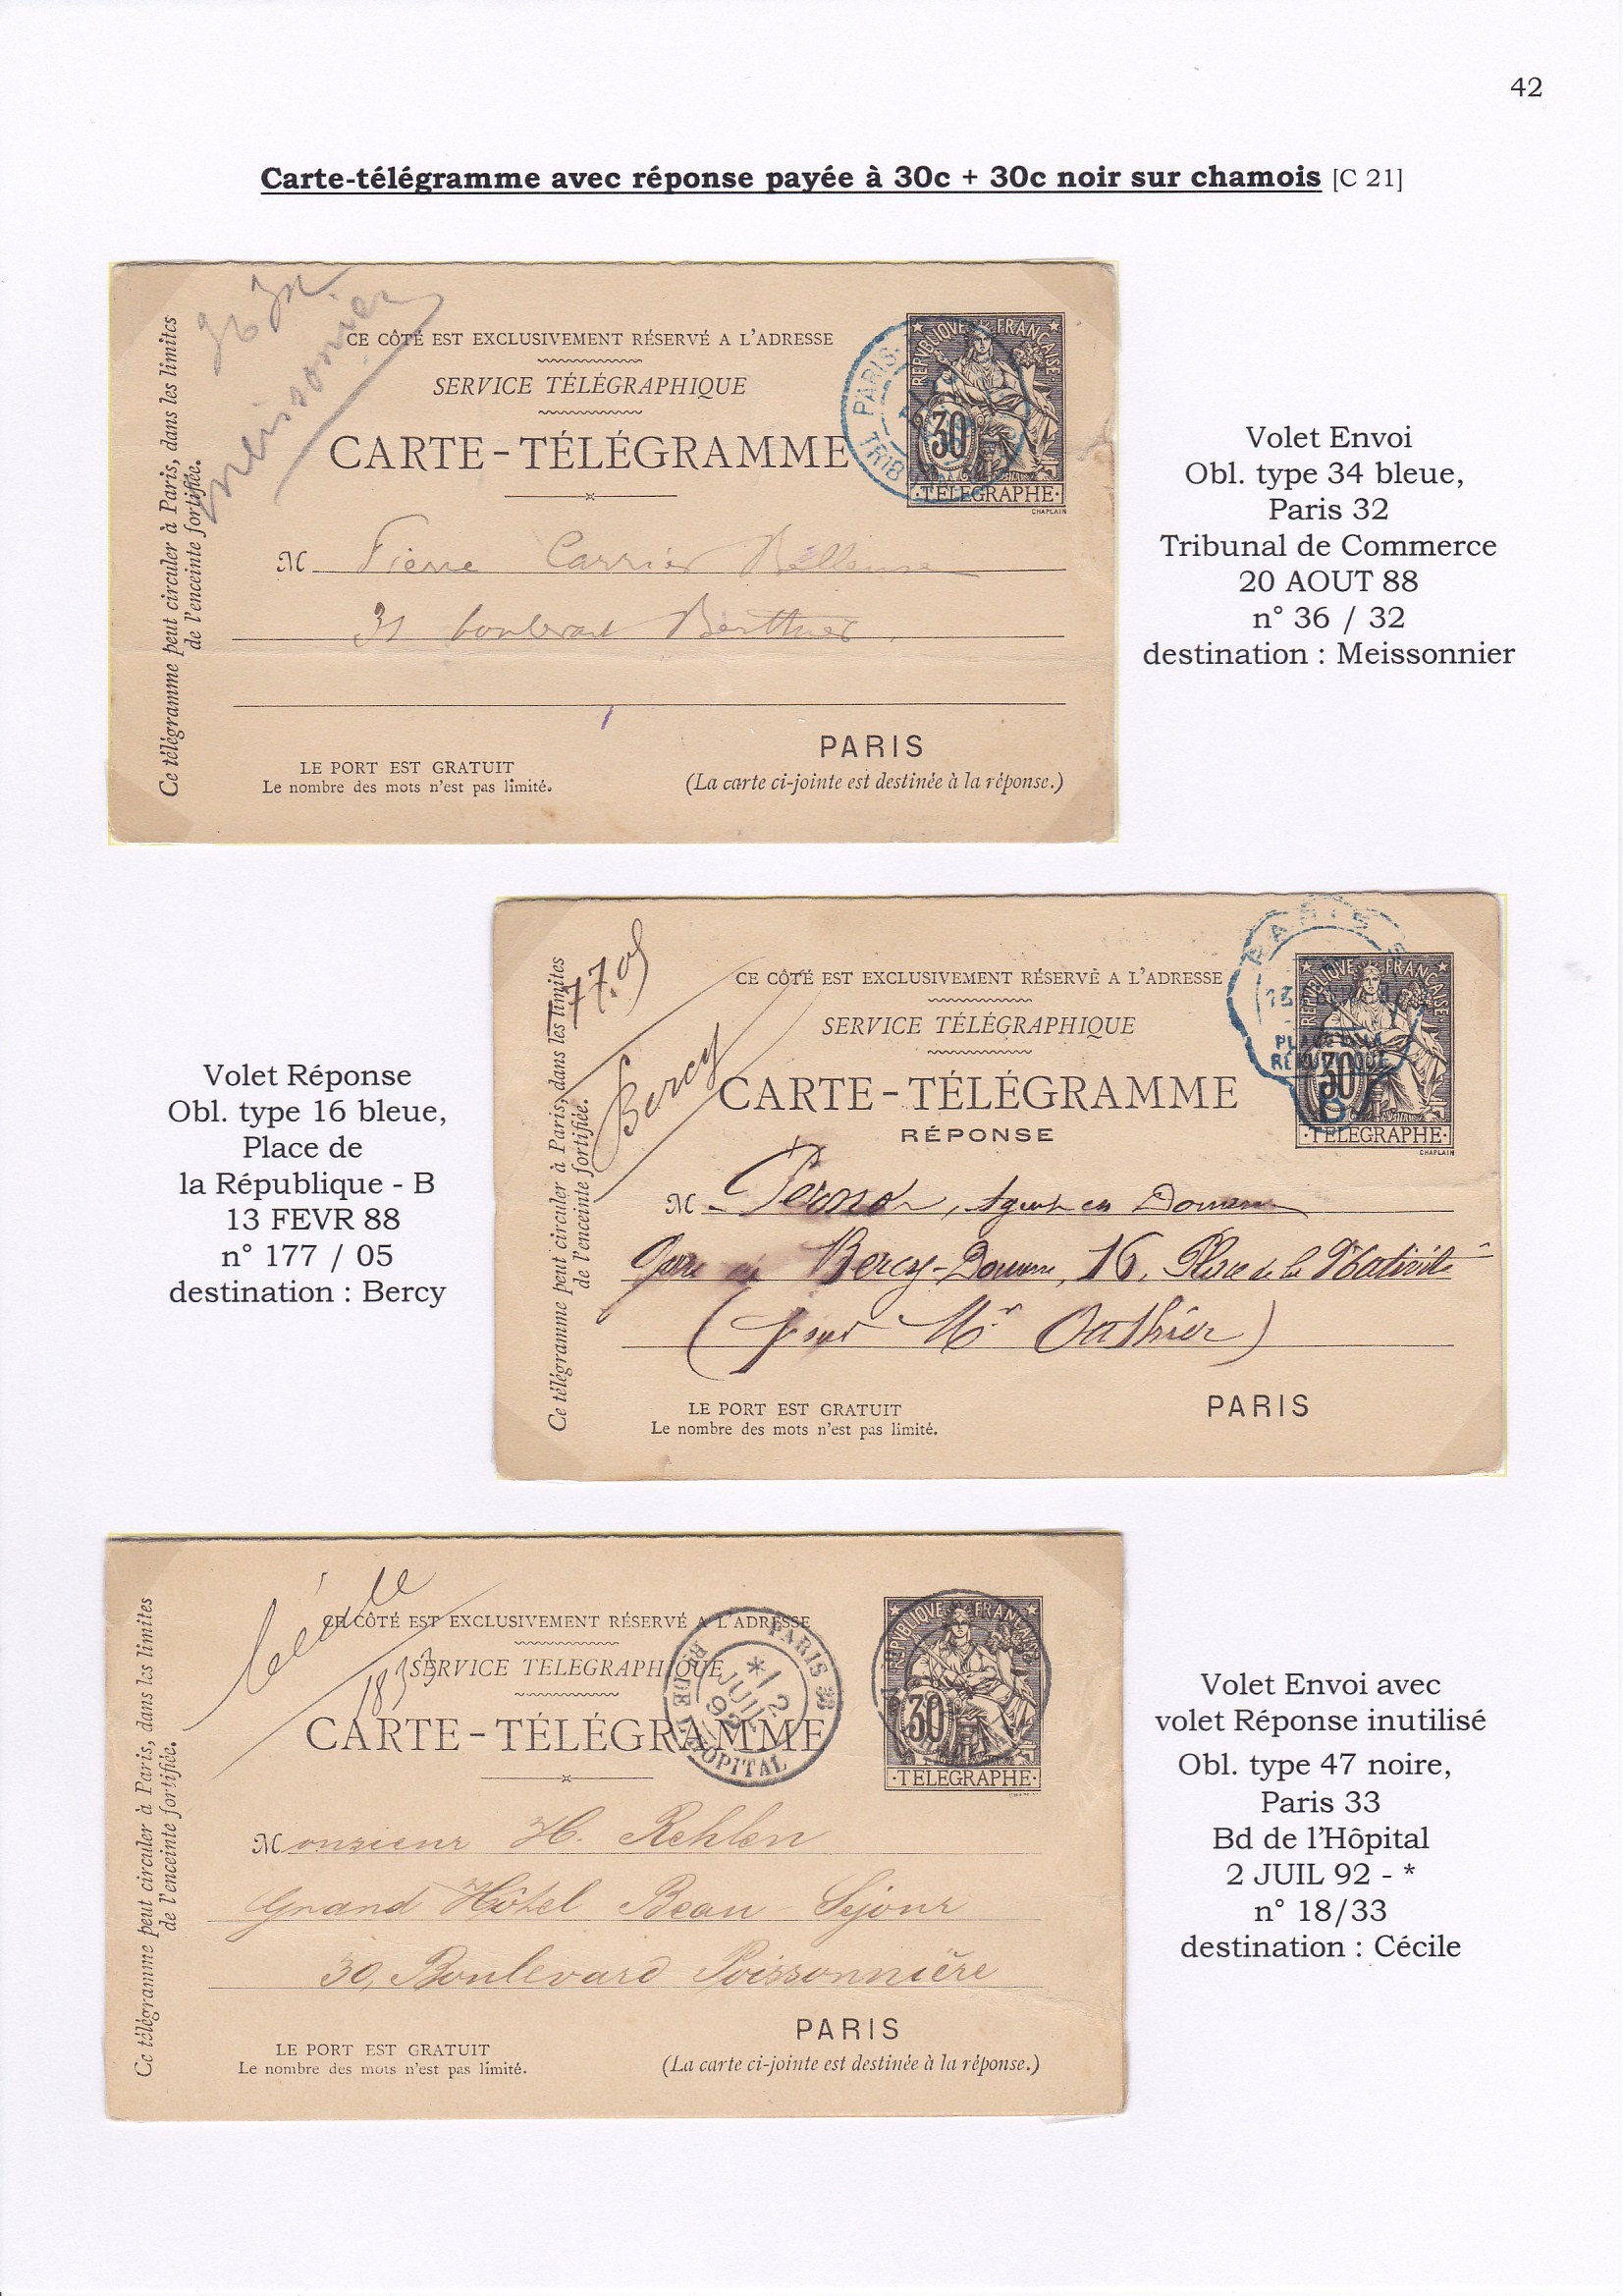 42
Carte-télégramme avec réponse payée à 30c + 30c noir sur chamois [C 21]
Ce télégramme peut circuler à Paris, dans les limites
de l'enceinte fortifiée.
meissonnier
CE CÔTÉ EST EXCLUSIVEMENT RÉSERVÉ A L'ADRESSE
SERVICE TÉLÉGRAPHIQUE
CARTE-TÉLÉGRAMME
PARIS
REPVBLIQVE FRANÇAISE
30
TELEGRAPHE
CHAPLAIN
M Pierre Carrier Belleuse
31 boulevard Berthier
PARIS
LE PORT EST GRATUIT
Le nombre des mots n'est pas limité.
(La carte ci-jointe est destinée à la réponse.)
Volet Envoi
Obl. type 34 bleue,
Paris 32
Tribunal de Commerce
20 AOUT 88
n° 36 / 32
destination : Meissonnier
Volet Réponse
Obl. type 16 bleue,
Place de
la République - B
13 FEVR 88
n° 177 / 05
destination : Bercy
Ce télégramme peut circuler à Paris, dans les limites
de l'enceinte fortifiée.
177.05
Bercy
CE CÔTÉ EST EXCLUSIVEMENT RÉSERVÉ A L'ADRESSE
SERVICE TÉLÉGRAPHIQUE
CARTE-TÉLÉGRAMME
RÉPONSE
PARIS
PLACE DE LA
REPUBLIQUE
B
REPVBLIQVE FRANÇAISE
30
TELEGRAPHE
CHAPLAIN
M , Agent en Douane
Gare de Bercy-Douane, 16, Place de la Nativité
(pour Mr Outhier)
LE PORT EST GRATUIT
Le nombre des mots n'est pas limité.
PARIS
Ce télégramme peut circuler à Paris, dans les limites
de l'enceinte fortifiée.
Cécile
18 33
CE CÔTÉ EST EXCLUSIVEMENT RÉSERVÉ A L'ADRESSE
SERVICE TELEGRAPHIQUE
CARTE-TÉLÉGRAMME
PARIS 33
*
2
JUIL
92
BD DE L'HÔPITAL
REPVBLIQVE FRANÇAISE
30
TELEGRAPHE
Monsieur H. Rehlen
Grand Hôtel Beau Séjour
30, Boulevard Poissonnière
PARIS
LE PORT EST GRATUIT
Le nombre des mots n'est pas limité.
(La carte ci-jointe est destinée à la réponse.)
Volet Envoi avec
volet Réponse inutilisé
Obl. type 47 noire,
Paris 33
Bd de l'Hôpital
2 JUIL 92 - *
n° 18/33
destination : Cécile